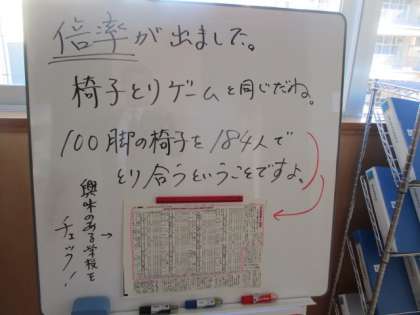 倍率が出ました。
椅子とりゲームと同じだね。
100脚の椅子を184人で
とり合うということですよ。
興味のある学校を→
チェック!